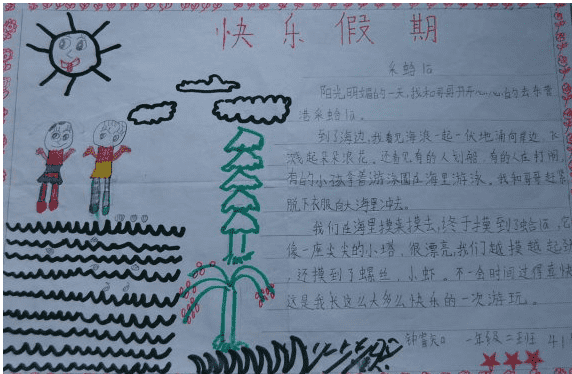 快乐假期
采蛤后
阳光明媚的一天,我和哥哥开开心心的去东营
港采蛤后。
到了海边,我看见海浪一起一伏地涌向岸边,飞
溅起朵朵浪花。还看见有的人划船,有的人在打闹,
有的小孩拿着游泳圈在海里游泳。我和哥哥赶紧
脱下衣服,向大海里冲去。
我们在海里摸来摸去,终于摸到了蛤后,它
像一座尖尖的小塔,很漂亮。我们越摸越起劲
还摸到了螺丝,小虾。不一会时间过得真快
这是我长这么大多么快乐的一次游玩。
一年级二班 41